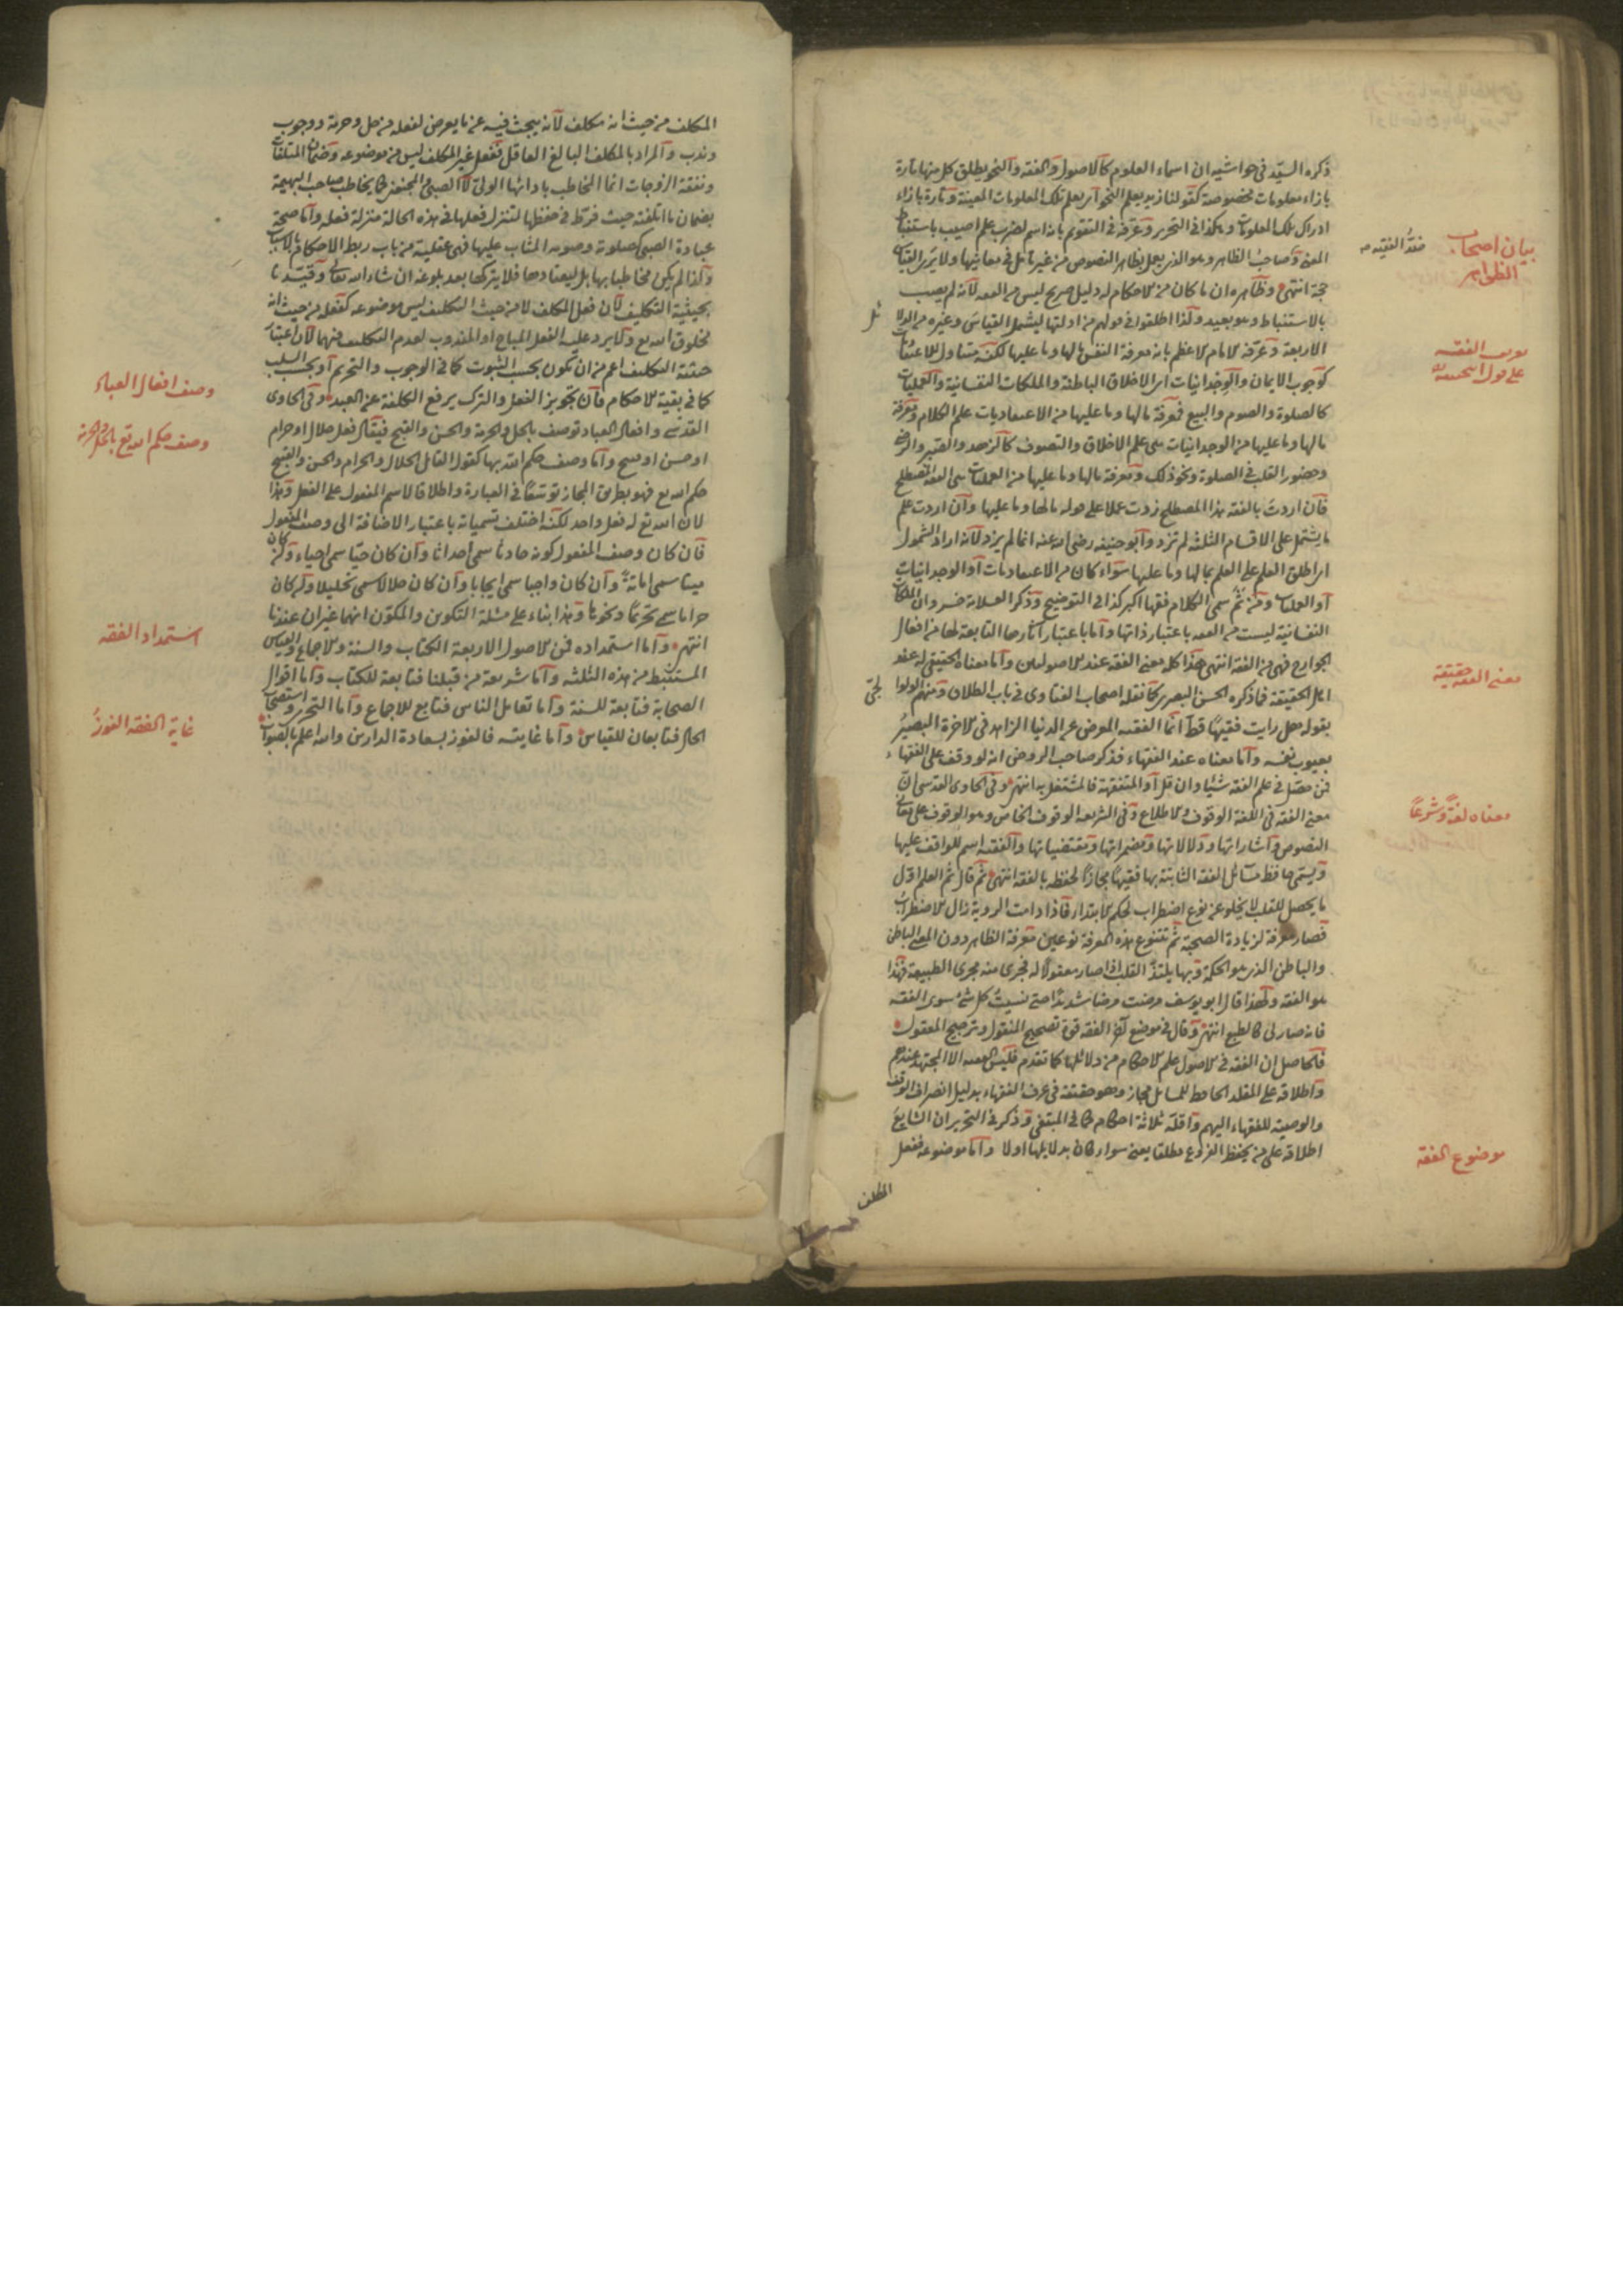 ذكره السيد في حواشيه ان اسماء العلوم كالاصول والفقه والنحو يطلق كل منها تارة
بازاء معلومات مخصوصة كقولنا زيد يعلم النحو اي يعلم تلك المعلومات المعينة وتارة بازاء
ادراك تلك المعلومات وهكذا في التحرير وعرفه في التقويم بانه اسم لضرب علم اصيب باستنباط
المعنى وصاحب الظاهر وهو الذي يعمل بظاهر النصوص من غير تأمل في معانيها ولا يرى القياس
حجة انتهى وظاهره ان ما كان من الاحكام له دليل صريح ليس من الفقه لانه لم يصب
بالاستنباط وهو بعيد ولذا اطلقوا في قولهم من ادلتها ليشمل القياس وغيره من الدلا
ئل
الاربعة وعرفه الامام الاعظم بانه معرفة النفس مالها وما عليها لكنه يتناول الاعتقاديات
كوجوب الايمان والوجدانيات اي الاخلاق الباطنة والملكات النفسانية والعمليات
كالصلوة والصوم والبيع فمعرفة مالها وما عليها من الاعتقاديات علم الكلام ومعرفة
مالها وما عليها من الوجدانيات هي علم الاخلاق والتصوف كالزهد والصبر والرضى
وحضور القلب في الصلوة ونحو ذلك ومعرفة مالها وما عليها من العمليات هي الفقه المصطلح
فان اردت بالفقه هذا المصطلح زدت عملا على قوله مالها وما عليها وان اردت علم
ما يشتمل على الاقسام الثلثة لم تزد وابو حنيفه رضى الله عنه انما لم يزد لانه اراد الشمول
اي اطلق العلم على العلم بمالها وما عليها سواء كان من الاعتقاديات او الوجدانيات
او العمليات ومن ثم سمى الكلام فقها اكبر كذا في التوضيح وذكر العلامة خسرو ان الملكات
النفسانية ليست من الفقه باعتبار ذاتها واما باعتبار آثارها التابعة لها من افعال
الجوارح فهى من الفقه انتهى هذا كله معنى الفقه عند الاصوليين واما معناه الحقيقى له عند
اهل الحقيقة فما ذكره الحسن البصرى كما نقله اصحاب الفتاوى في باب الطلاق ومنهم الولوا
لجى
بقوله هل رايت فقيها قط انما الفقيه المعرض عن الدنيا الزاهد في الاخرة البصير
بعيوب نفسه واما معناه عند الفقهاء فذكر صاحب الروض انه لو وقف على الفقهاء
فمن حصل في علم الفقه شيئا وان قل او المتفقهة فالمشتغل به انتهى وفي الحاوى القدسى ان
معنى الفقه في اللغة الوقوف والاطلاع وفي الشريعه الوقوف الخاص وهو الوقوف على معانى
النصوص واشاراتها ودلالاتها ومضمراتها ومقتضياتها والفقيه اسم للواقف عليها
ويسمى حافظ مسائل الفقه الثابتة بها فقيها مجازا لحفظه بالفقه انتهى ثم قال ثم العلم اول
ما يحصل للقلب لا يخلو عن نوع اضطراب لحكم الابتداء فاذا دامت الروية زال الاضطراب
فصار معرفة لزيادة الصحبة ثم تتنوع هذه المعرفة نوعين معرفة الظاهر دون المعنى الباطن
والباطن الذي هو الحكمة وبها يلتذ القلب اذا صار معقولا له فجرى منه مجرى الطبيعة فهذا
هو الفقه ولهذا قال ابو يوسف مرضت مرضا شديدا حتى نسيت كل شئ سوى الفقه
فانه صار لى كالطبع انتهى وقال في موضع آخر الفقه قوة تصحيح المنقول وترجيح المعقول
فالحاصل ان الفقه في الاصول علم الاحكام من دلائلها كما تقدم فليس الفقيه الا المجتهد عندهم
واطلاقه على المقلد الحافظ للمسائل مجاز وهو حقيقة في عرف الفقهاء بدليل انصراف الوقف
والوصية للفقهاء اليهم واقله ثلاثة احكام كما في المنتقى وذكر في التحرير ان الشايع
اطلاقه على من يحفظ الفروع مطلقا يعنى سواء كان بدلايلها اولا واما موضوعه ففعل
المكلف
حد الفقيه
بيان اصحاب
الظواهر
تعريف الفقه
على قول ابى حنيفة
معنى الفقه حقيقة
معناه لغة وشرعا
موضوع الفقه
المكلف من حيث انه مكلف لانه يبحث فيه عن ما يعرض لفعله من حل وحرمة ووجوب
وندب والمراد بالمكلف البالغ العاقل ففعل غير المكلف ليس من موضوعه وضمان المتلفات
ونفقة الزوجات انما المخاطب بادائها الولى لا الصبى والمجنون كما يخاطب صاحب البهيمة
بضمان ما اتلفته حيث فرط في حفظها لتنزل فعلها في هذه الحالة منزلة فعله واما صحة
عبادة الصبى كصلوته وصومه المثاب عليها فهى عقلية من باب ربط الاحكام بالاسباب
ولذا لم يكن مخاطبا بها بل ليعتادها فلا يتركها بعد بلوغه ان شاء الله تعالى وقيدنا
بحيثية التكليف لان فعل المكلف لا من حيث التكليف ليس موضوعه كفعله من حيث انه
مخلوق الله تع ولا يرد عليه الفعل المباح او المندوب لعدم التكليف فيهما لان اعتبار
حيثية التكليف اعم من ان تكون بحسب الثبوت كما في الوجوب والتحريم او بحسب السلب
كما في بقية الاحكام فان تجويز الفعل والترك يرفع الكلفة عن العبد وفي الحاوى
القدسى وافعال العباد توصف بالحل والحرمة والحسن والقبح فيقال فعل حلال او حرام
او حسن او قبيح واما وصف حكم الله بها كقول القائل الحلال والحرام والحسن والقبيح
حكم الله تع فهو بطريق المجاز توسعا في العبارة واطلاقا لاسم المفعول على الفعل وهذا
لان الله تع له فعل واحد لكنه اختلف تسمياته باعتبار الاضافة الى وصف المفعول
فان كان وصف المفعول كونه حادثا سمى احداثا وان كان حيا سمى احياء وان كان
ميتا سمى اماتة وان كان واجبا سمى ايجابا وان كان حلالا سمى تحليلا وان كان
حراما سمى تحريما ونحوها وهذا بناء على مسئلة التكوين والمكون انهما غيران عندنا
انتهى واما استمداده فمن الاصول الاربعة الكتاب والسنة والاجماع والقياس
المستنبط من هذه الثلثه واما شريعة من قبلنا فتابعة للكتاب واما اقوال
الصحابة فتابعة للسنة واما تعامل الناس فتابع للاجماع واما التحرى واستصحاب
الحال فتابعان للقياس واما غايته فالفوز بسعادة الدارين والله اعلم بالصواب
وصف افعال العباد
وصف حكم الله تع بالحل والحرمة
استمداد الفقه
غاية الفقه الفوز